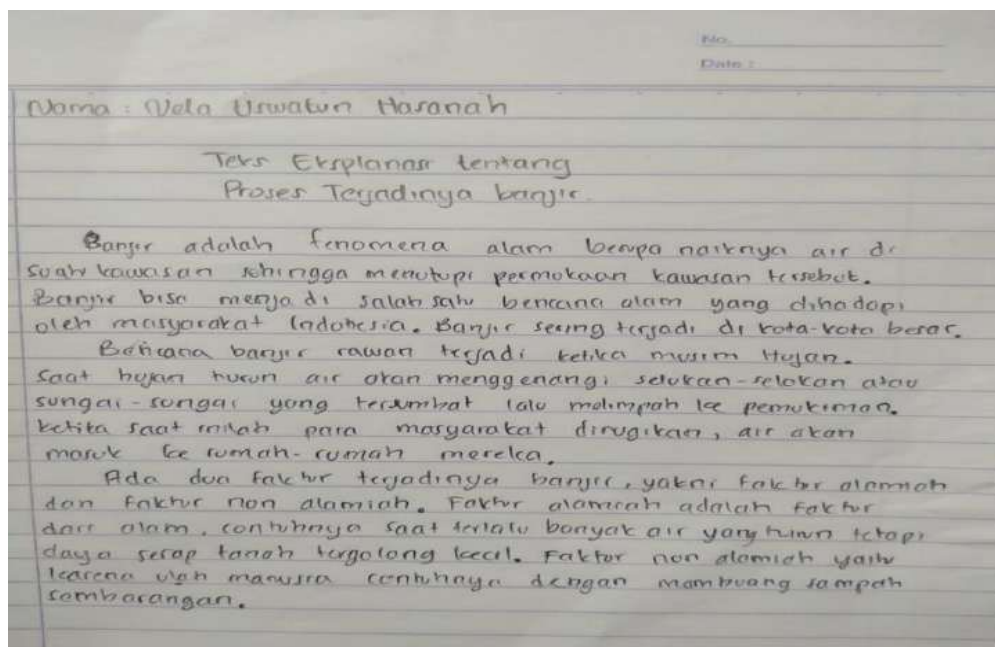 No.
Date :
Nama : Nela Uswatun Hasanah
Teks Eksplanasi tentang
Proses Terjadinya banjir.
Banjir adalah fenomena alam berupa naiknya air di
suatu kawasan sehingga menutupi permukaan kawasan tersebut.
Banjir bisa menjadi salah satu bencana alam yang dihadapi
oleh masyarakat Indonesia. Banjir sering terjadi di kota-kota besar.
Bencana banjir rawan terjadi ketika musim Hujan.
Saat hujan turun air akan menggenangi selokan-selokan atau
sungai-sungai yang tersumbat lalu melimpah ke pemukiman.
ketika saat inilah para masyarakat dirugikan, air akan
masuk ke rumah-rumah mereka.
Ada dua faktor terjadinya banjir, yakni faktor alamiah
dan faktor non alamiah. Faktor alamiah adalah faktor
dari alam, contohnya saat terlalu banyak air yang turun tetapi
daya serap tanah tergolong kecil. Faktor non alamiah yaitu
karena ulah manusia contohnya dengan mambuang sampah
sembarangan.